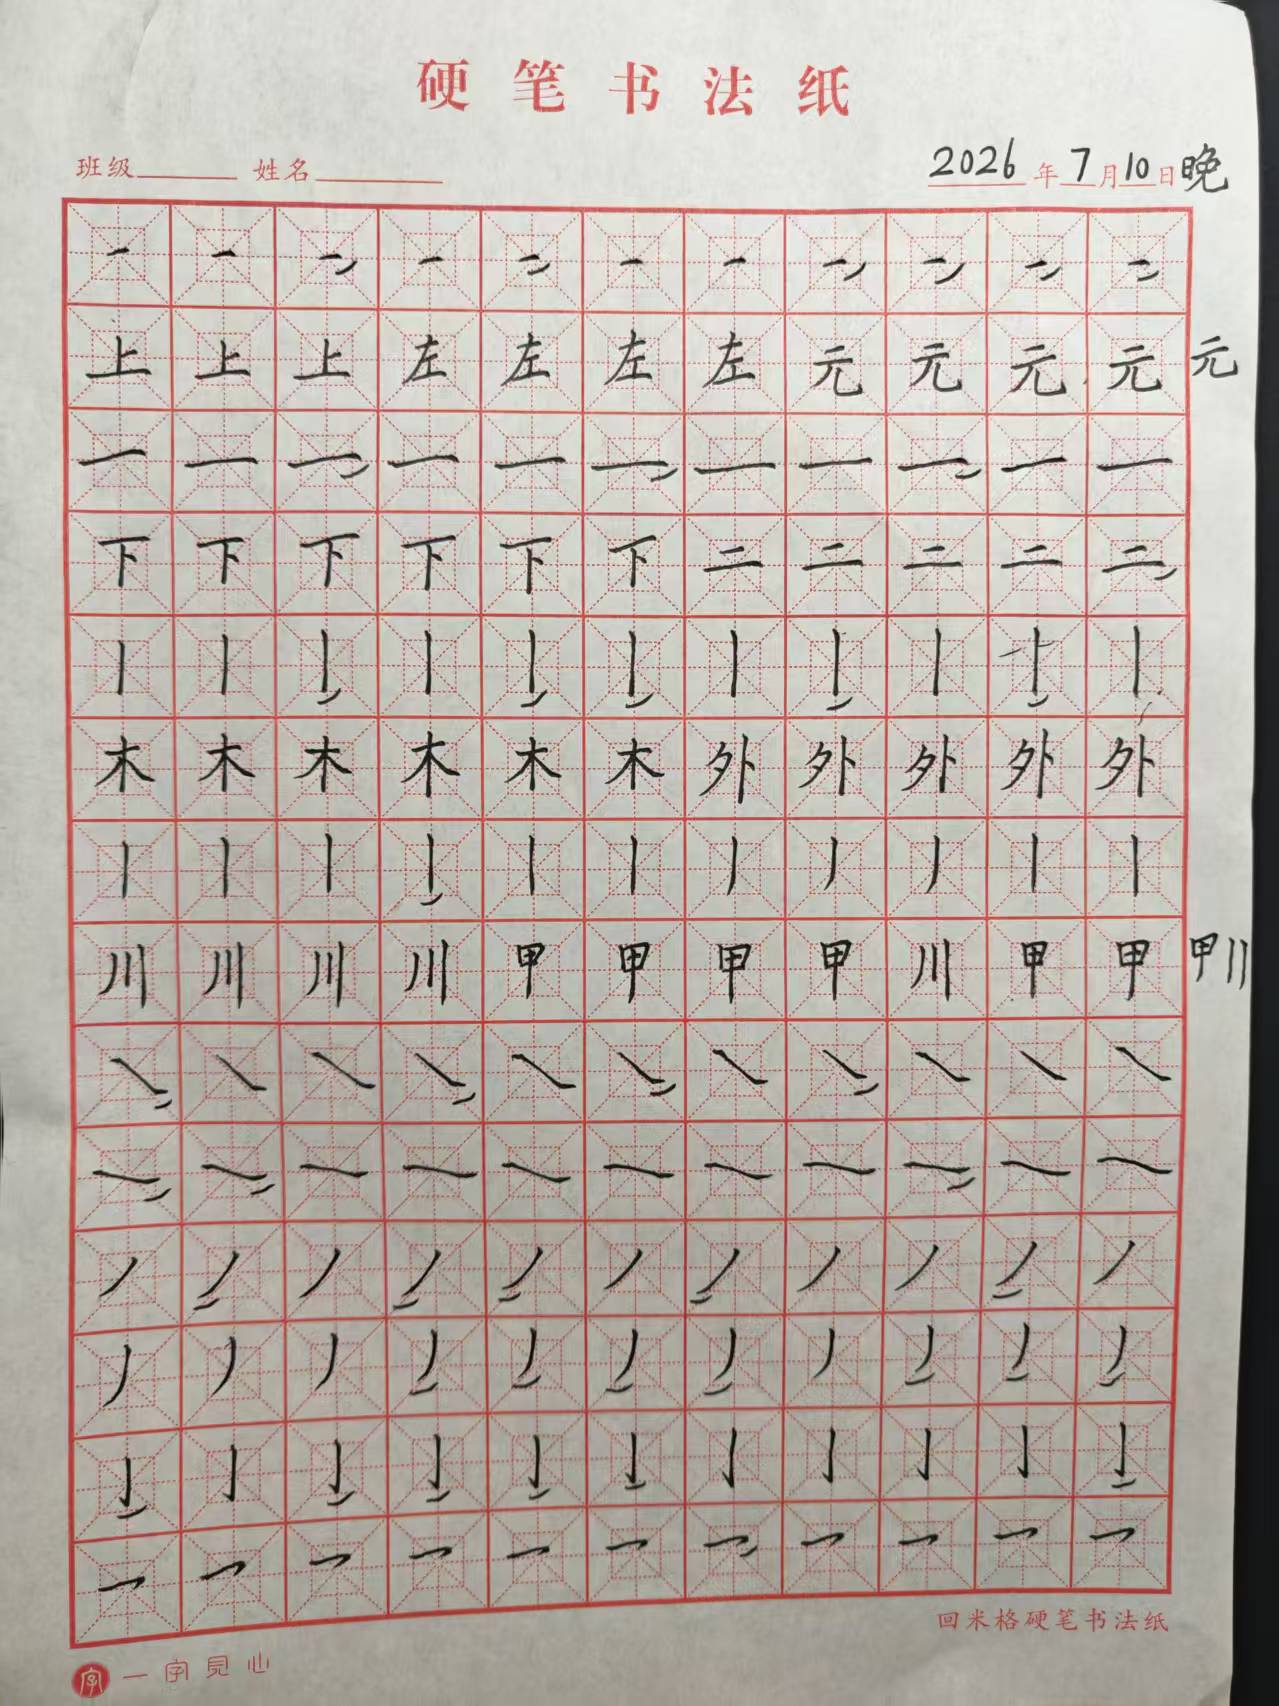 硬笔书法纸
班级 姓名 2026年7月10日晚
一 一 一 一 一 一 一 一 一 一 一
上 上 上 左 左 左 左 元 元 元 元 元
一 一 一 一 一 一 一 一 一 一 一
下 下 下 下 下 下 二 二 二 二 二
丨 丨 丨 丨 丨 丨 丨 丨 丨 丨 丨
木 木 木 木 木 木 外 外 外 外 外
丨 丨 丨 丨 丨 丨 丿 丿 丿 丨 丨
川 川 川 川 甲 甲 甲 甲 川 甲 甲 甲 丨丨
㇏ ㇏ ㇏ ㇏ ㇏ ㇏ ㇏ ㇏ ㇏ ㇏ ㇏
㇏ ㇏ ㇏ ㇏ ㇏ ㇏ ㇏ ㇏ ㇏ ㇏ ㇏
丿 丿 丿 丿 丿 丿 丿 丿 丿 丿 丿
丿 丿 丿 丿 丿 丿 丿 丿 丿 丿 丿
亅 亅 亅 亅 亅 亅 亅 亅 亅 亅 亅
乛 乛 乛 乛 乛 乛 乛 乛 乛 乛 乛
回米格硬笔书法纸
字 一字見心